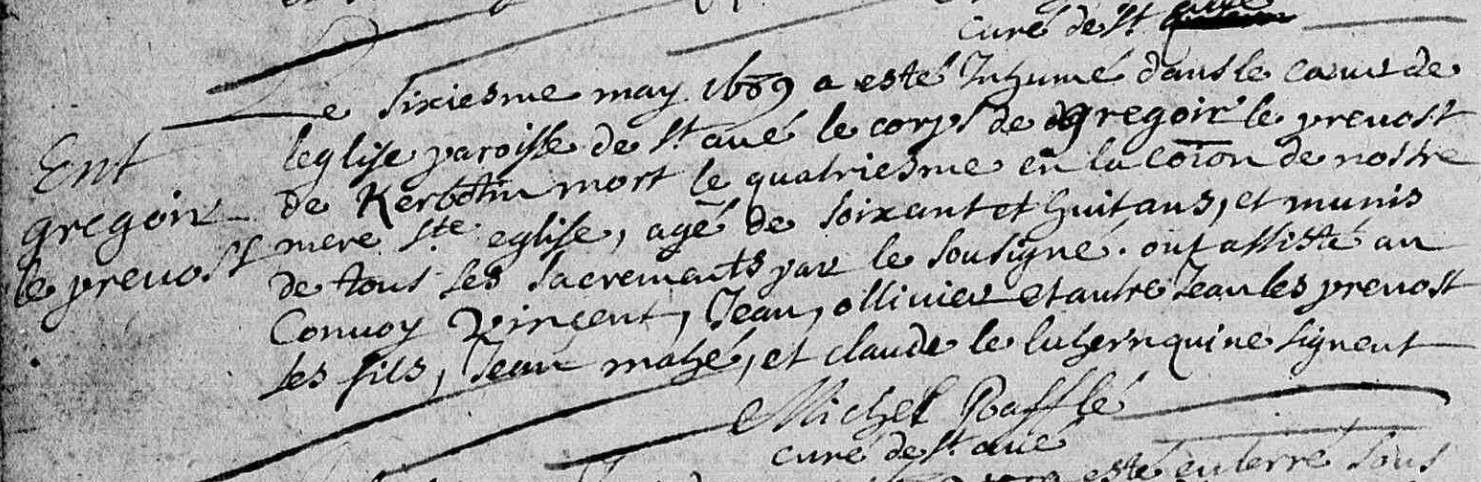 curé de St aué
Le sixiesme may 1689 a esté Inhumé dans le cœur de
leglise paroisse de St. aué le corps de gregoir le prevost
de Kerbotin mort le quatriesme en la coïon de nostre
mere ste eglise, agé de soixant et huit ans, et munis
de tous ses sacremants par le sousigné. ont assisté au
Convoy Vincent, Jean, ollivier et autre Jean les prevost
ses fils, Jean mahé, et claude le luhern qui ne signent
Ent
gregoir
le prevost
Michel Rafflé
curé de St. aué
esté enterré sous